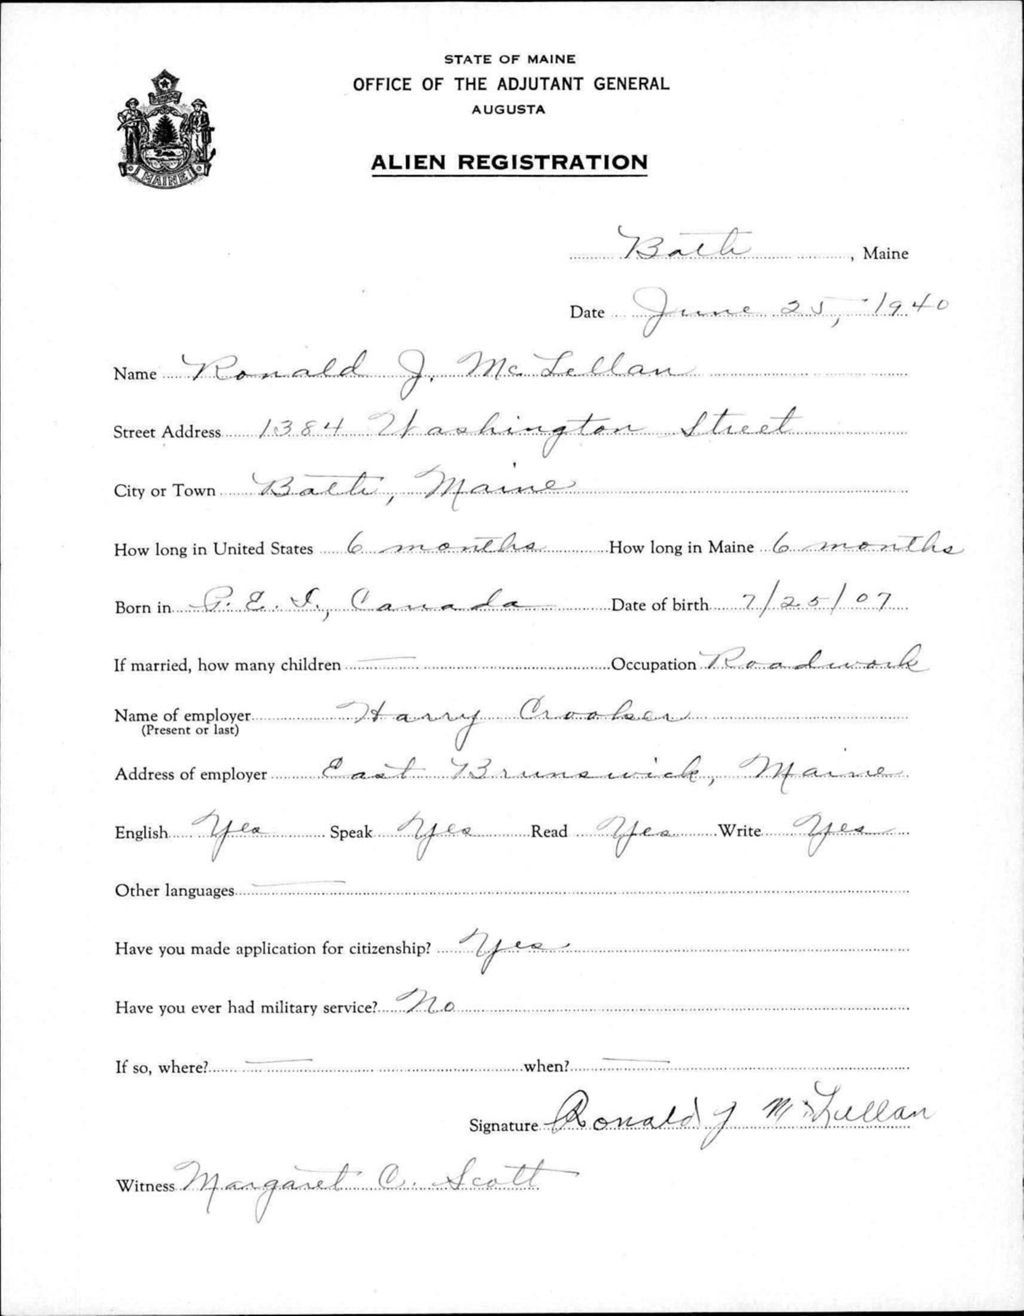 STATE OF MAINE
OFFICE OF THE ADJUTANT GENERAL
AUGUSTA
ALIEN REGISTRATION
MAINE
Bath, Maine
Date June 25, 1940
Name Ronald J. McLellan
Street Address 1384 Washington Street
City or Town Bath, Maine
How long in United States 6 months How long in Maine 6 months
Born in P.E.I., Canada Date of birth 7/25/07
If married, how many children — Occupation Roadwork
Name of employer Harry Crooker
(Present or last)
Address of employer East Brunswick, Maine
English Yes Speak Yes Read Yes Write Yes
Other languages —
Have you made application for citizenship? Yes
Have you ever had military service? No
If so, where? — when? —
Signature Ronald J McLellan
Witness Margaret C. Scott